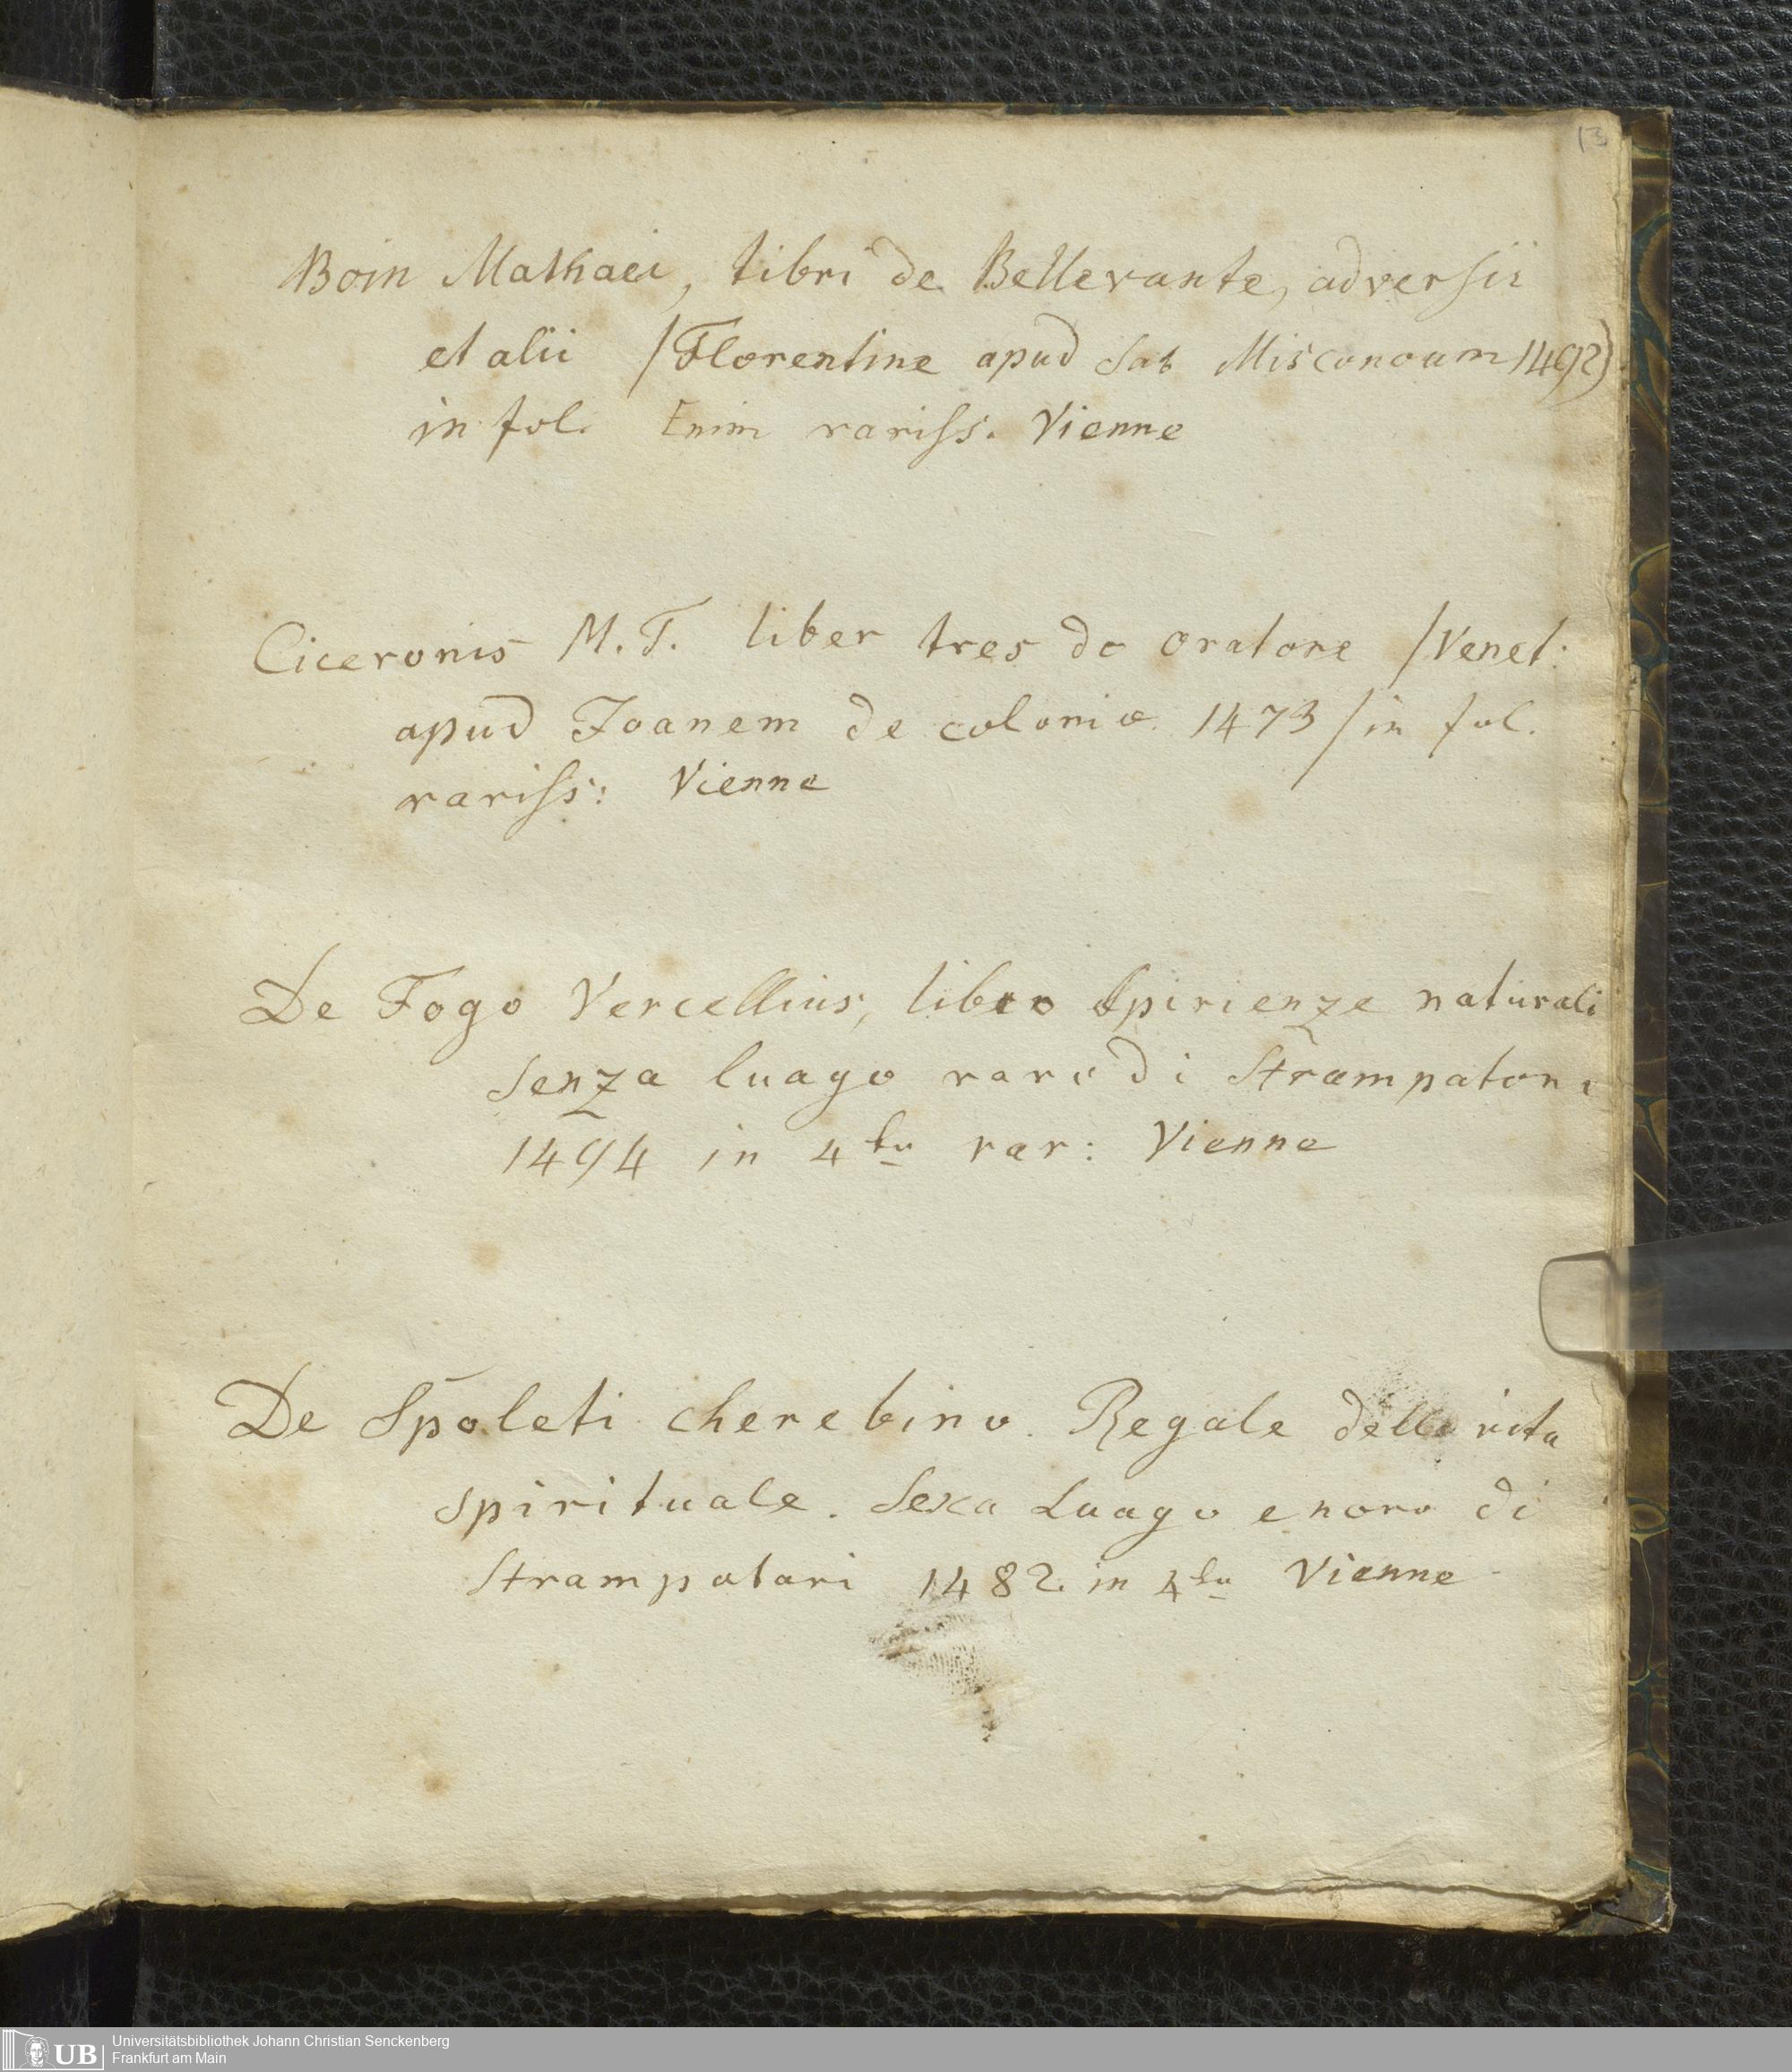 13
Boin Mathaei, libri de Bellevante, adversii
et alii /Florentine apud Sat Misconoum 1492)
in fol. Enim rariss. Vienne
Ciceronis M. T. liber tres de oratore /Venet:
apud Joanem de colonia 1473/in fol.
rariss: Vienne
De Fogo Vercellius, libro Spirienze naturali
Senza luago rare di Strampatori
1494 in 4to rar: Vienne
De Spoleti cherebino. Regale della vita
spirituale. Sexa Luago enoro di
Strampatari 1482. in 4to Vienne
UB
Universitätsbibliothek Johann Christian Senckenberg
Frankfurt am Main